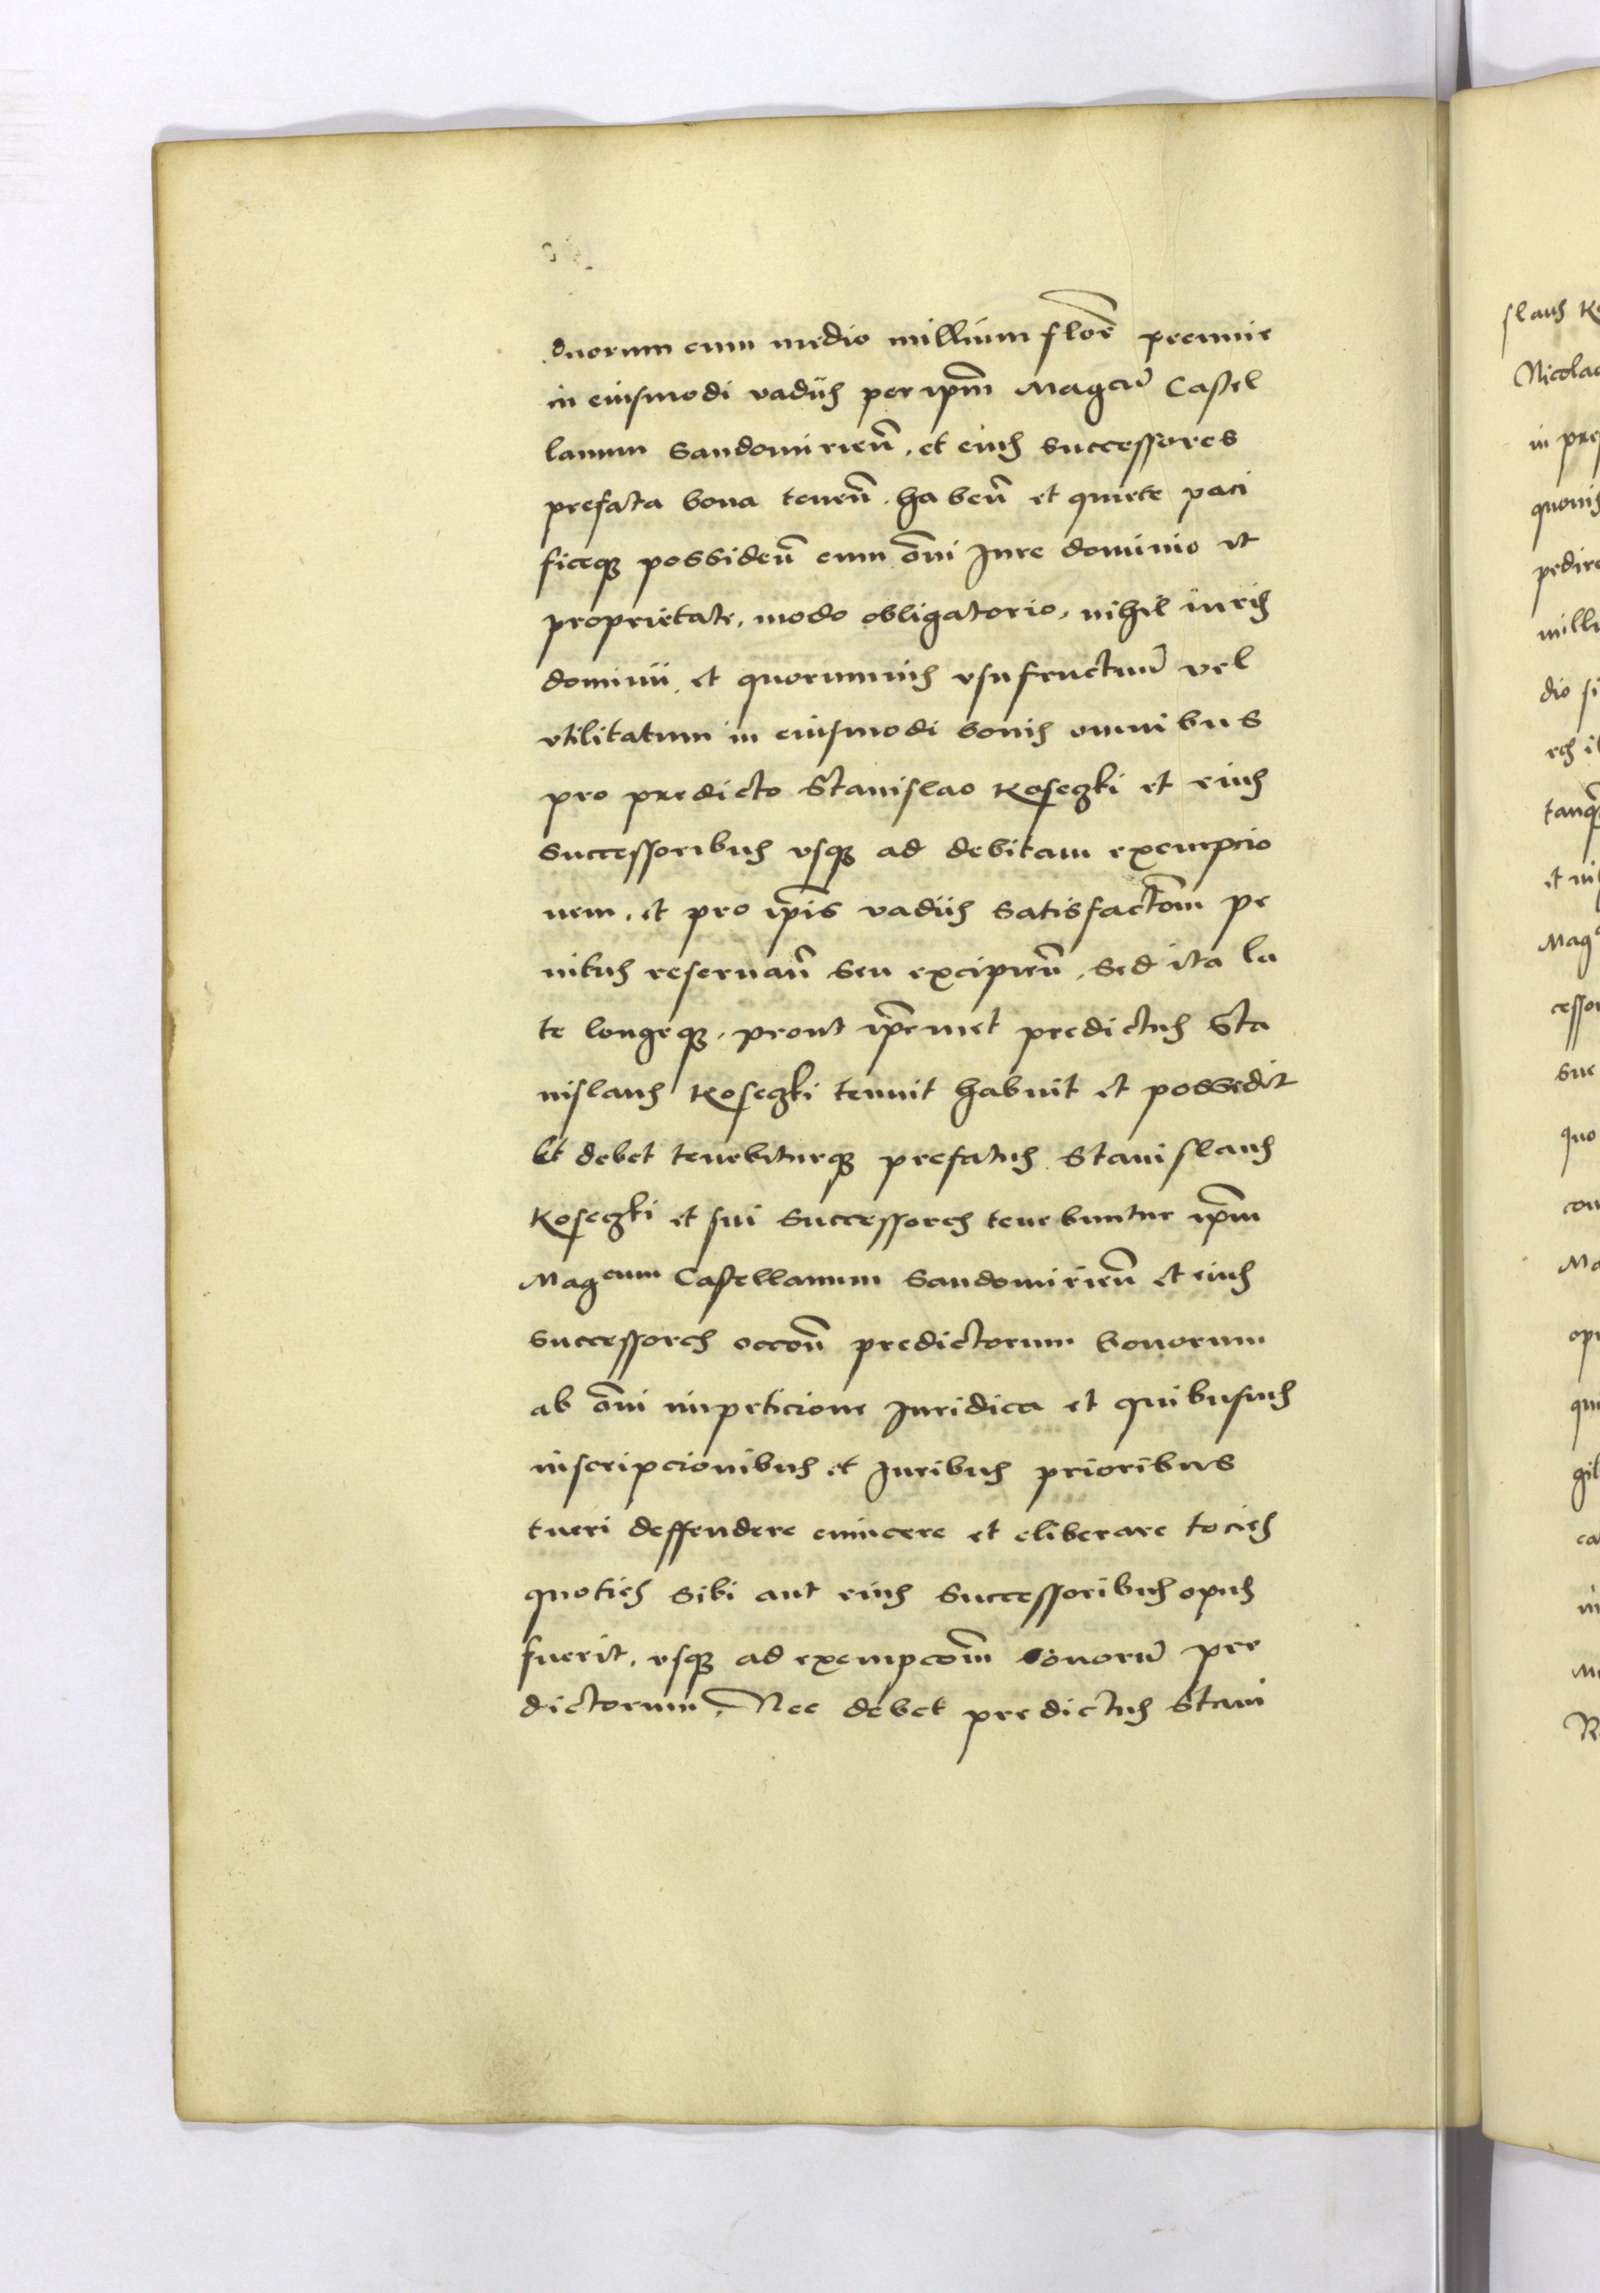 duorum cum medio millium floȓ pecunie
in eiusmodi vadiis per ip̄m Magcū Castel
lanum Sandomirień. et eius successores
prefata bona teneń. habeń et quiete paci
ficeqꝫ possideń cum om̄i Jure dominio et
proprietate, modo obligatorio, nihil iuris
dominii et quorumuis vsufructuū vel
vtilitatum in eiusmodi bonis omnibus
pro predicto Stanislao Koseczki et eius
Successoribus vsqꝫ ad debitam exempcio
nem. et pro ip̄is vadiis satisfactōm pe
nitus reseruań seu excipień. Sed ita la
te longeqꝫ. prout ip̄emet predictus Sta
nislaus Koseczki tenuit habuit et possedit
Et debet tenebiturqꝫ prefatus Stanislaus
Koseczki et sui Successores tenebuntur ip̄m
Magcum Castellanum Sandomirień et eius
Successores occoń predictorum bonorum
ab om̄i impeticione Juridica et quibusuis
inscripcionibus et Juribus prioribus
tueri deffendere euincere et eliberare tocies
quoties sibi aut eius Successoribus opus
fuerit, vsqꝫ ad exempcōm bonorū pre
dictorum. Nec debet predictus Stani
slaus
Nicolao
in